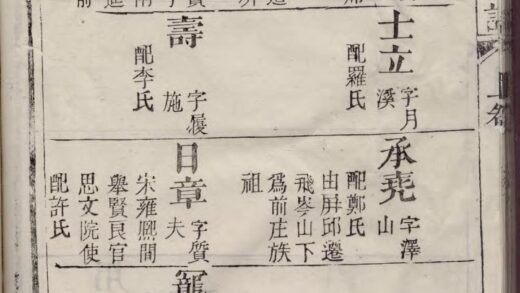 士立
字月
溪
配羅氏
壽
字履
施
配李氏
承尭
字澤
山
配鄭氏
由屏邱遷
飛岑山下
爲前庄族
祖
日章
字質
夫
宋雍熈間
舉賢良官
思文院使
配許氏